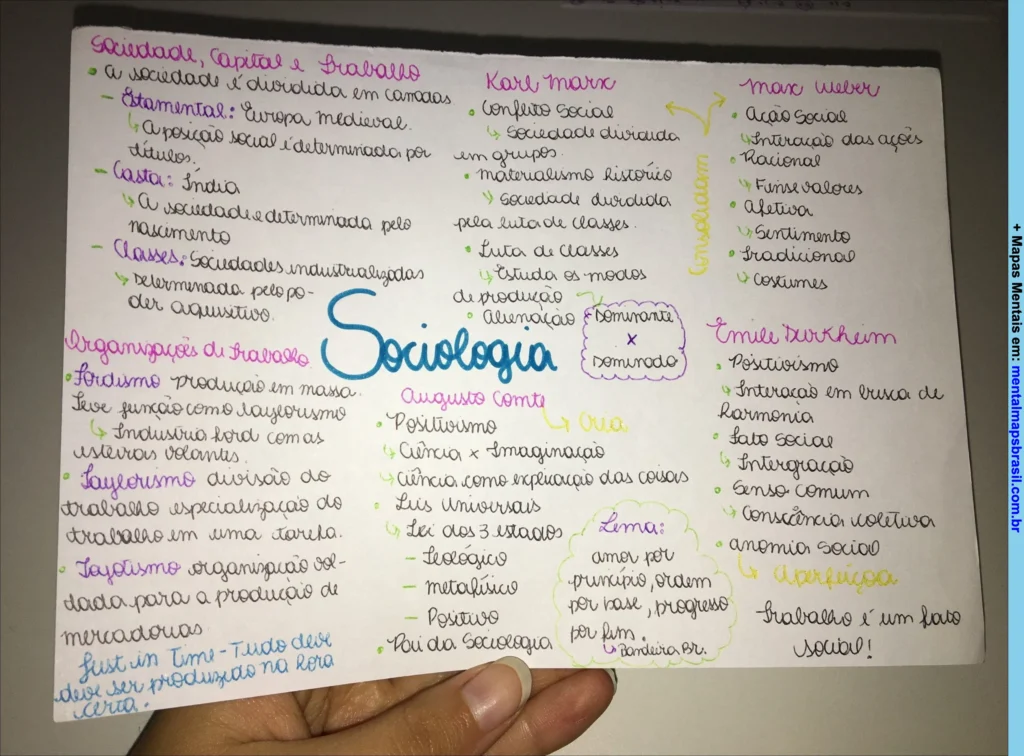 Sociedade, Capital e Trabalho
• A sociedade é dividida em camadas
- Estamental: Europa medieval.
↳ A posição social é determinada por
títulos.
- Casta: Índia
↳ A sociedade e determinada pelo
nascimento
- Classes: Sociedades industrializadas
↳ Determinada pelo po-
der aquisitivo.
Organizações de trabalho
• Fordismo produção em massa.
Teve função como taylorismo
↳ Industria ford com as
esteiras volantes.
• Taylorismo divisão do
trabalho especialização do
trabalho em uma tarefa.
• Toyotismo organização vol-
dada para a produção de
mercadorias
Just in Time - Tudo deve
deve ser produzido na hora
certa.
Sociologia
Karl Marx
• Conflito Social
↳ Sociedade dividida
em grupos.
• materialismo histórico
↳ Sociedade dividida
pela luta de classes.
• Luta de classes
↳ Estuda os modos
de produção
• Alienação
Dominante
x
Dominado
Consolidam
Max Weber
• Ação Social
↳ Interação das ações
• Racional
↳ Fins e valores
• Afetiva
↳ Sentimento
• Tradicional
↳ Costumes
Augusto Comte
↳ Cria
• Positivismo
↳ Ciência x Imaginação
↳ Ciência como explicação das coisas
• Leis Universais
↳ Lei dos 3 estados
- Teológico
- metafísico
- Positivo
• Pai da Sociologia
Lema:
amor por
princípio, ordem
por base, progresso
por fim.
↳ Bandeira Br.
Emile Durkheim
• Positivismo
↳ Interação em busca de
harmonia
• Fato Social
↳ Intergração
• Senso comum
↳ Consciência coletiva
• anomia social
↳ Aperfeiçoa
Trabalho é um fato
social!
+ Mapas Mentais em: mentalmapsbrasil.com.br